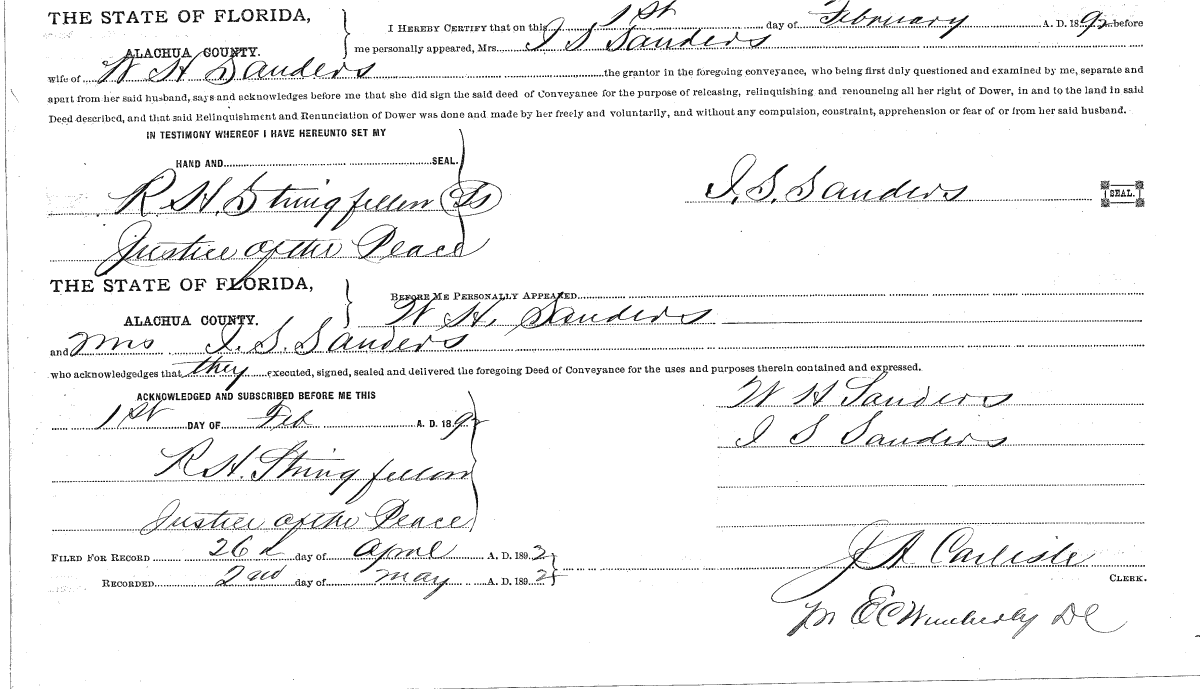 THE STATE OF FLORIDA, I HEREBY CERTIFY that on this 1st day of February A. D. 1892 before
ALACHUA COUNTY. me personally appeared, Mrs. I S Sanders
wife of W H Sanders the grantor in the foregoing conveyance, who being first duly questioned and examined by me, separate and
apart from her said husband, says and acknowledges before me that she did sign the said deed of Conveyance for the purpose of releasing, relinquishing and renouncing all her right of Dower, in and to the land in said
Deed described, and that said Relinquishment and Renunciation of Dower was done and made by her freely and voluntarily, and without any compulsion, constraint, apprehension or fear of or from her said husband.
IN TESTIMONY WHEREOF I HAVE HEREUNTO SET MY
HAND AND SEAL.
R H. Stringfellow Ls I. S. Sanders SEAL.
Justice of the Peace
THE STATE OF FLORIDA, BEFORE ME PERSONALLY APPEARED
ALACHUA COUNTY. W H. Sanders
and Mrs I. S. Sanders
who acknowledgedges that they executed, signed, sealed and delivered the foregoing Deed of Conveyance for the uses and purposes therein contained and expressed.
ACKNOWLEDGED AND SUBSCRIBED BEFORE ME THIS W H Sanders
1st DAY OF Feb A. D. 1892 I S Sanders
R H. Stringfellow
Justice of the Peace
FILED FOR RECORD 26 day of April A. D. 1892 J A Carlisle
RECORDED 2nd day of May A. D. 1892 CLERK.
E C Wimberly DC